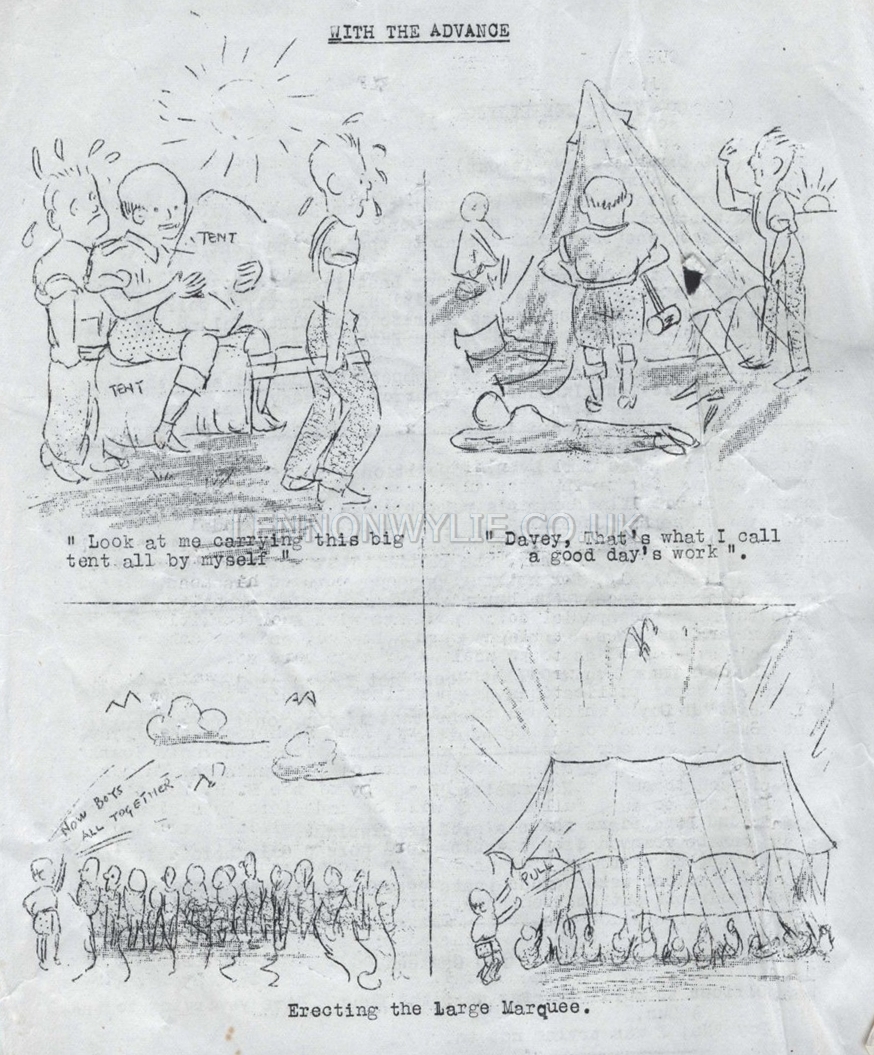 WITH THE ADVANCE
TENT
TENT
" Look at me carrying this big
tent all by myself "
" Davey, That's what I call
a good day's work ".
LENNONWYLIE.CO.UK
NOW BOYS
ALL TOGETHER
PULL
Erecting the Large Marquee.